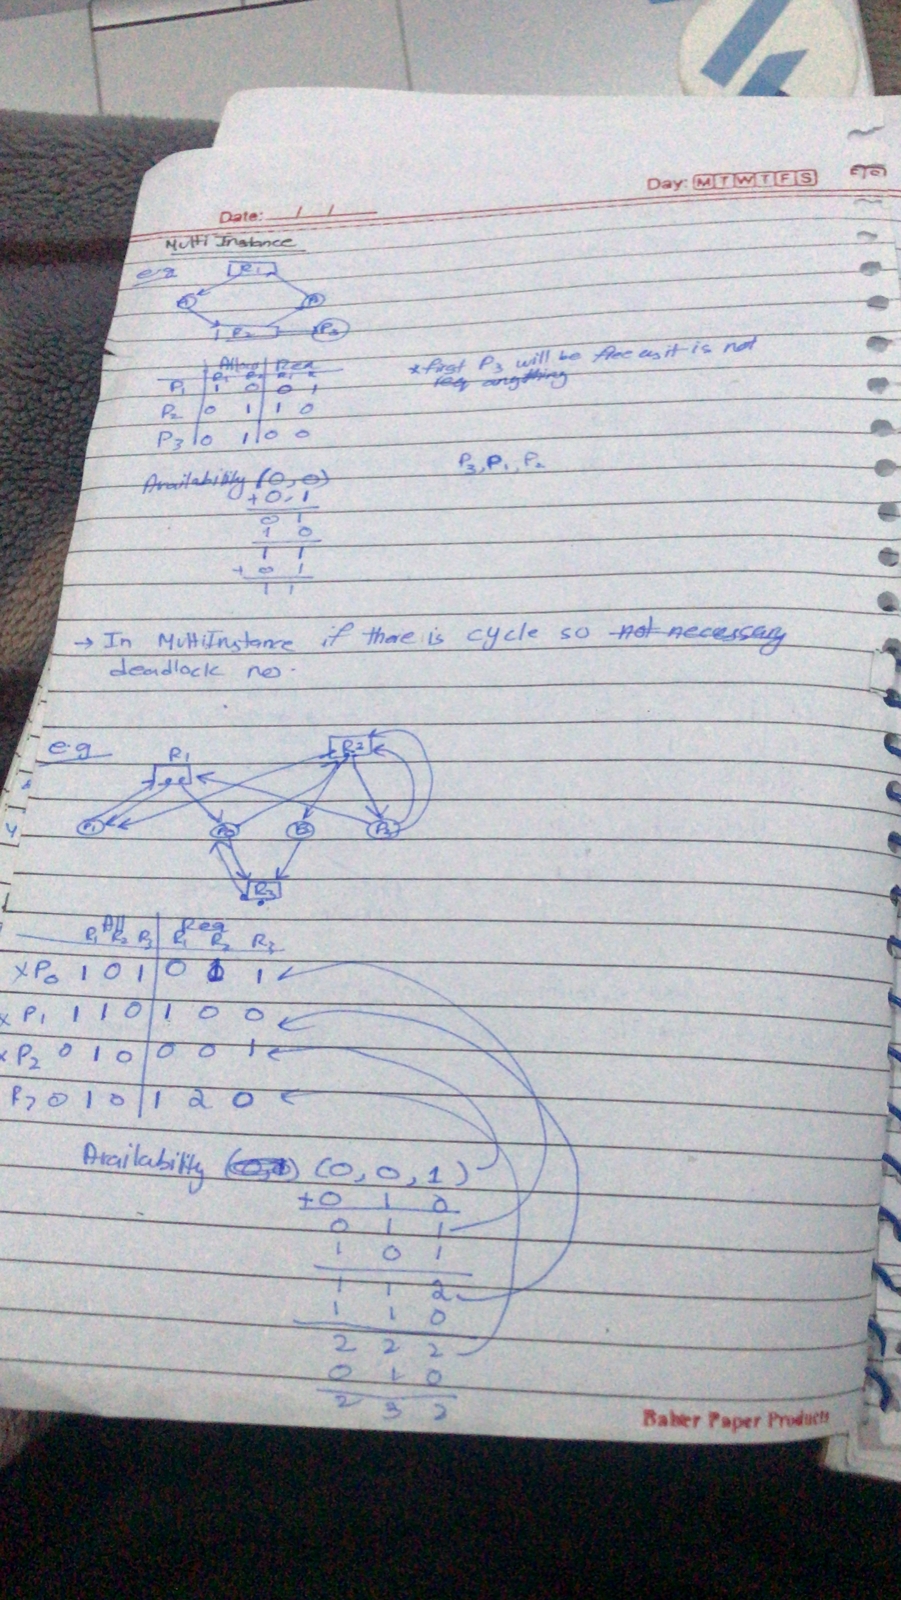 Day: M T W T F S
Date: / /
Multi Instance
e.g R1
R2 P3
Allow Req
P1 1 0 0 1
P2 0 1 1 0
P3 0 1 0 0
* first P3 will be free as it is not
req anything
P3, P1, P2
Availability (0, 0)
+ 0, 1
0 1
1 0
1 1
+ 0 1
1 1
→ In MultiInstance if there is cycle so not necessary
deadlock
e.g R1 R2
R3
All Req
R1 R2 R3 R1 R2 R3
x P0 1 0 1 0 1 1
x P1 1 1 0 1 0 0
x P2 0 1 0 0 0 1
0 1 0 1 2 0
Availability (0, 0, 1)
+0 1 0
0 1 1
1 0 1
1 1 2
1 1 0
2 2 2
0 1 0
2 3 2
Baber Paper Products